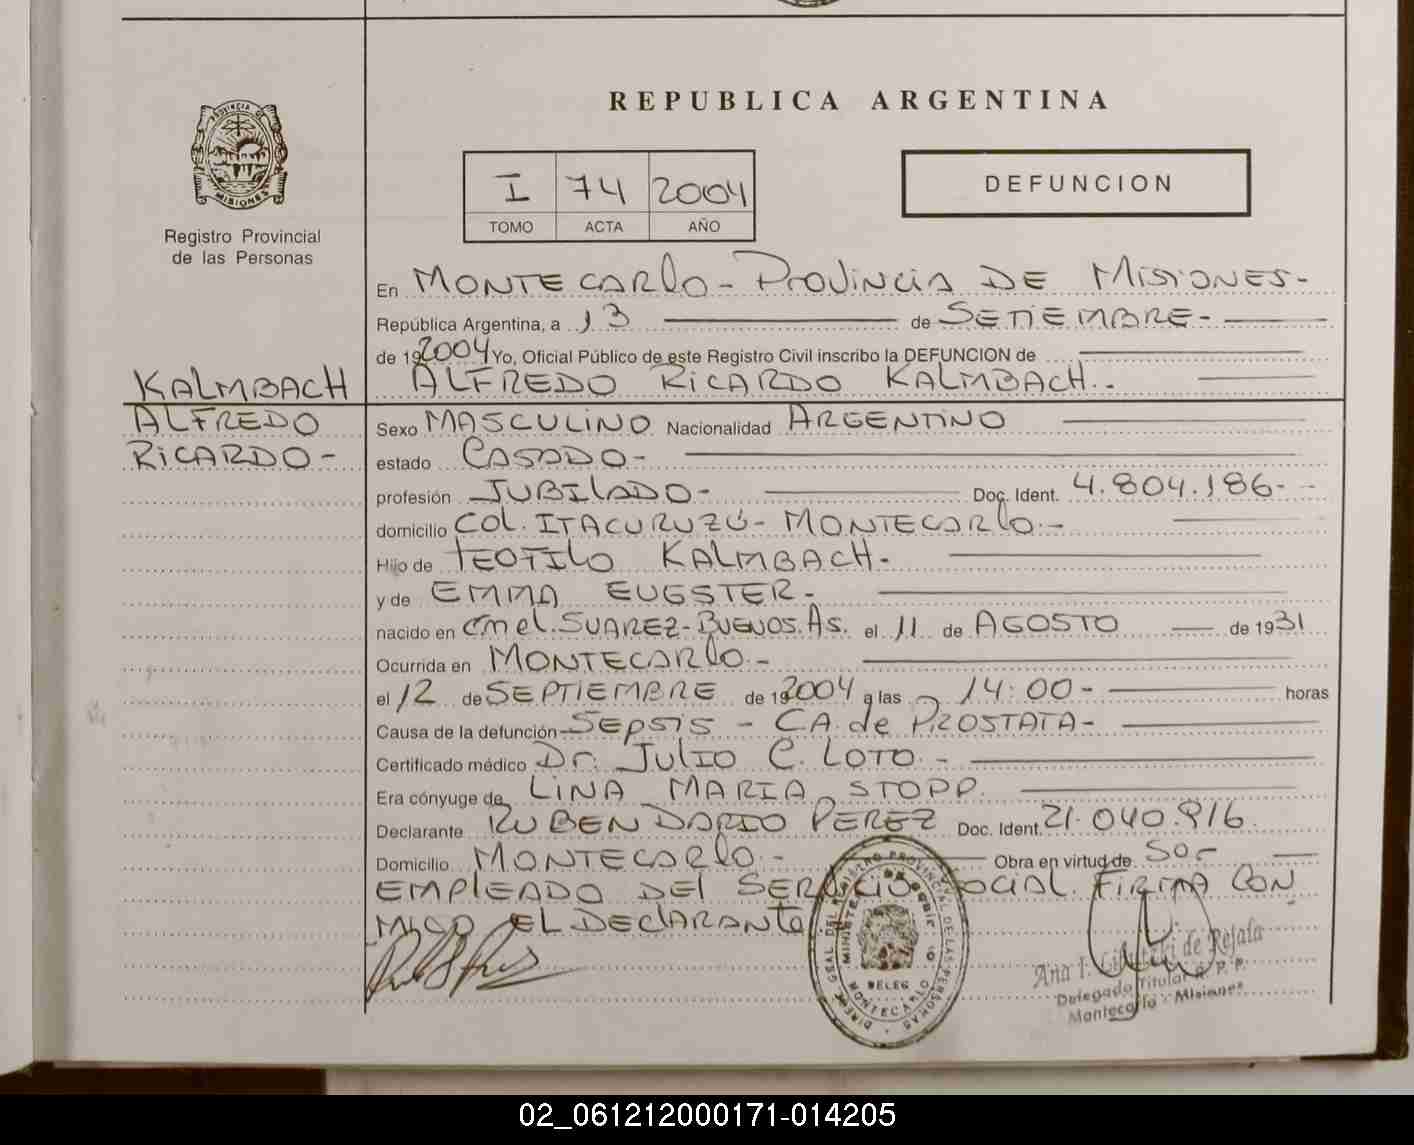 PROVINCIA D
MISIONES
Registro Provincial
de las Personas
KALMBACH
ALFREDO
RICARDO-
REPUBLICA ARGENTINA
I 74 2004
TOMO ACTA AÑO
DEFUNCION
En MONTECARLO - PROVINCIA DE MISIONES-
República Argentina, a 13 de SETIEMBRE-
de 192004 Yo, Oficial Público de este Registro Civil inscribo la DEFUNCION de
ALFREDO RICARDO KALMBACH.-
Sexo MASCULINO Nacionalidad ARGENTINO
estado CASADO-
profesión JUBILADO- Doc. Ident. 4.804.186-
domicilio COL. ITACURUZÚ- MONTECARLO.-
Hijo de TEOFILO KALMBACH-
y de EMMA EUGSTER-
nacido en CNEL. SUAREZ-BUENOS.AS. el 11 de AGOSTO de 1931
Ocurrida en MONTECARLO.-
el 12 de SEPTIEMBRE de 192004 a las 14:00- horas
Causa de la defunción SEPSIS - CA. de PROSTATA-
Certificado médico Dr. JULIO C. LOTO.-
Era cónyuge de LINA MARIA STOPP.
Declarante RUBEN DARIO PEREZ Doc. Ident. 21.040.916.
Domicilio MONTECARLO.- Obra en virtud de SO.-
EMPLEADO DEL SERVICIO SOCIAL. FIRMA CON
MIGO EL DECLARANTE
DIREC. GRAL. DEL REGISTRO PROVINCIAL DE LAS PERSONAS
MONTECARLO
Ana I. de Rejala
Delegado Titular R. P. P.
Montecarlo - Misiones
02_061212000171-014205